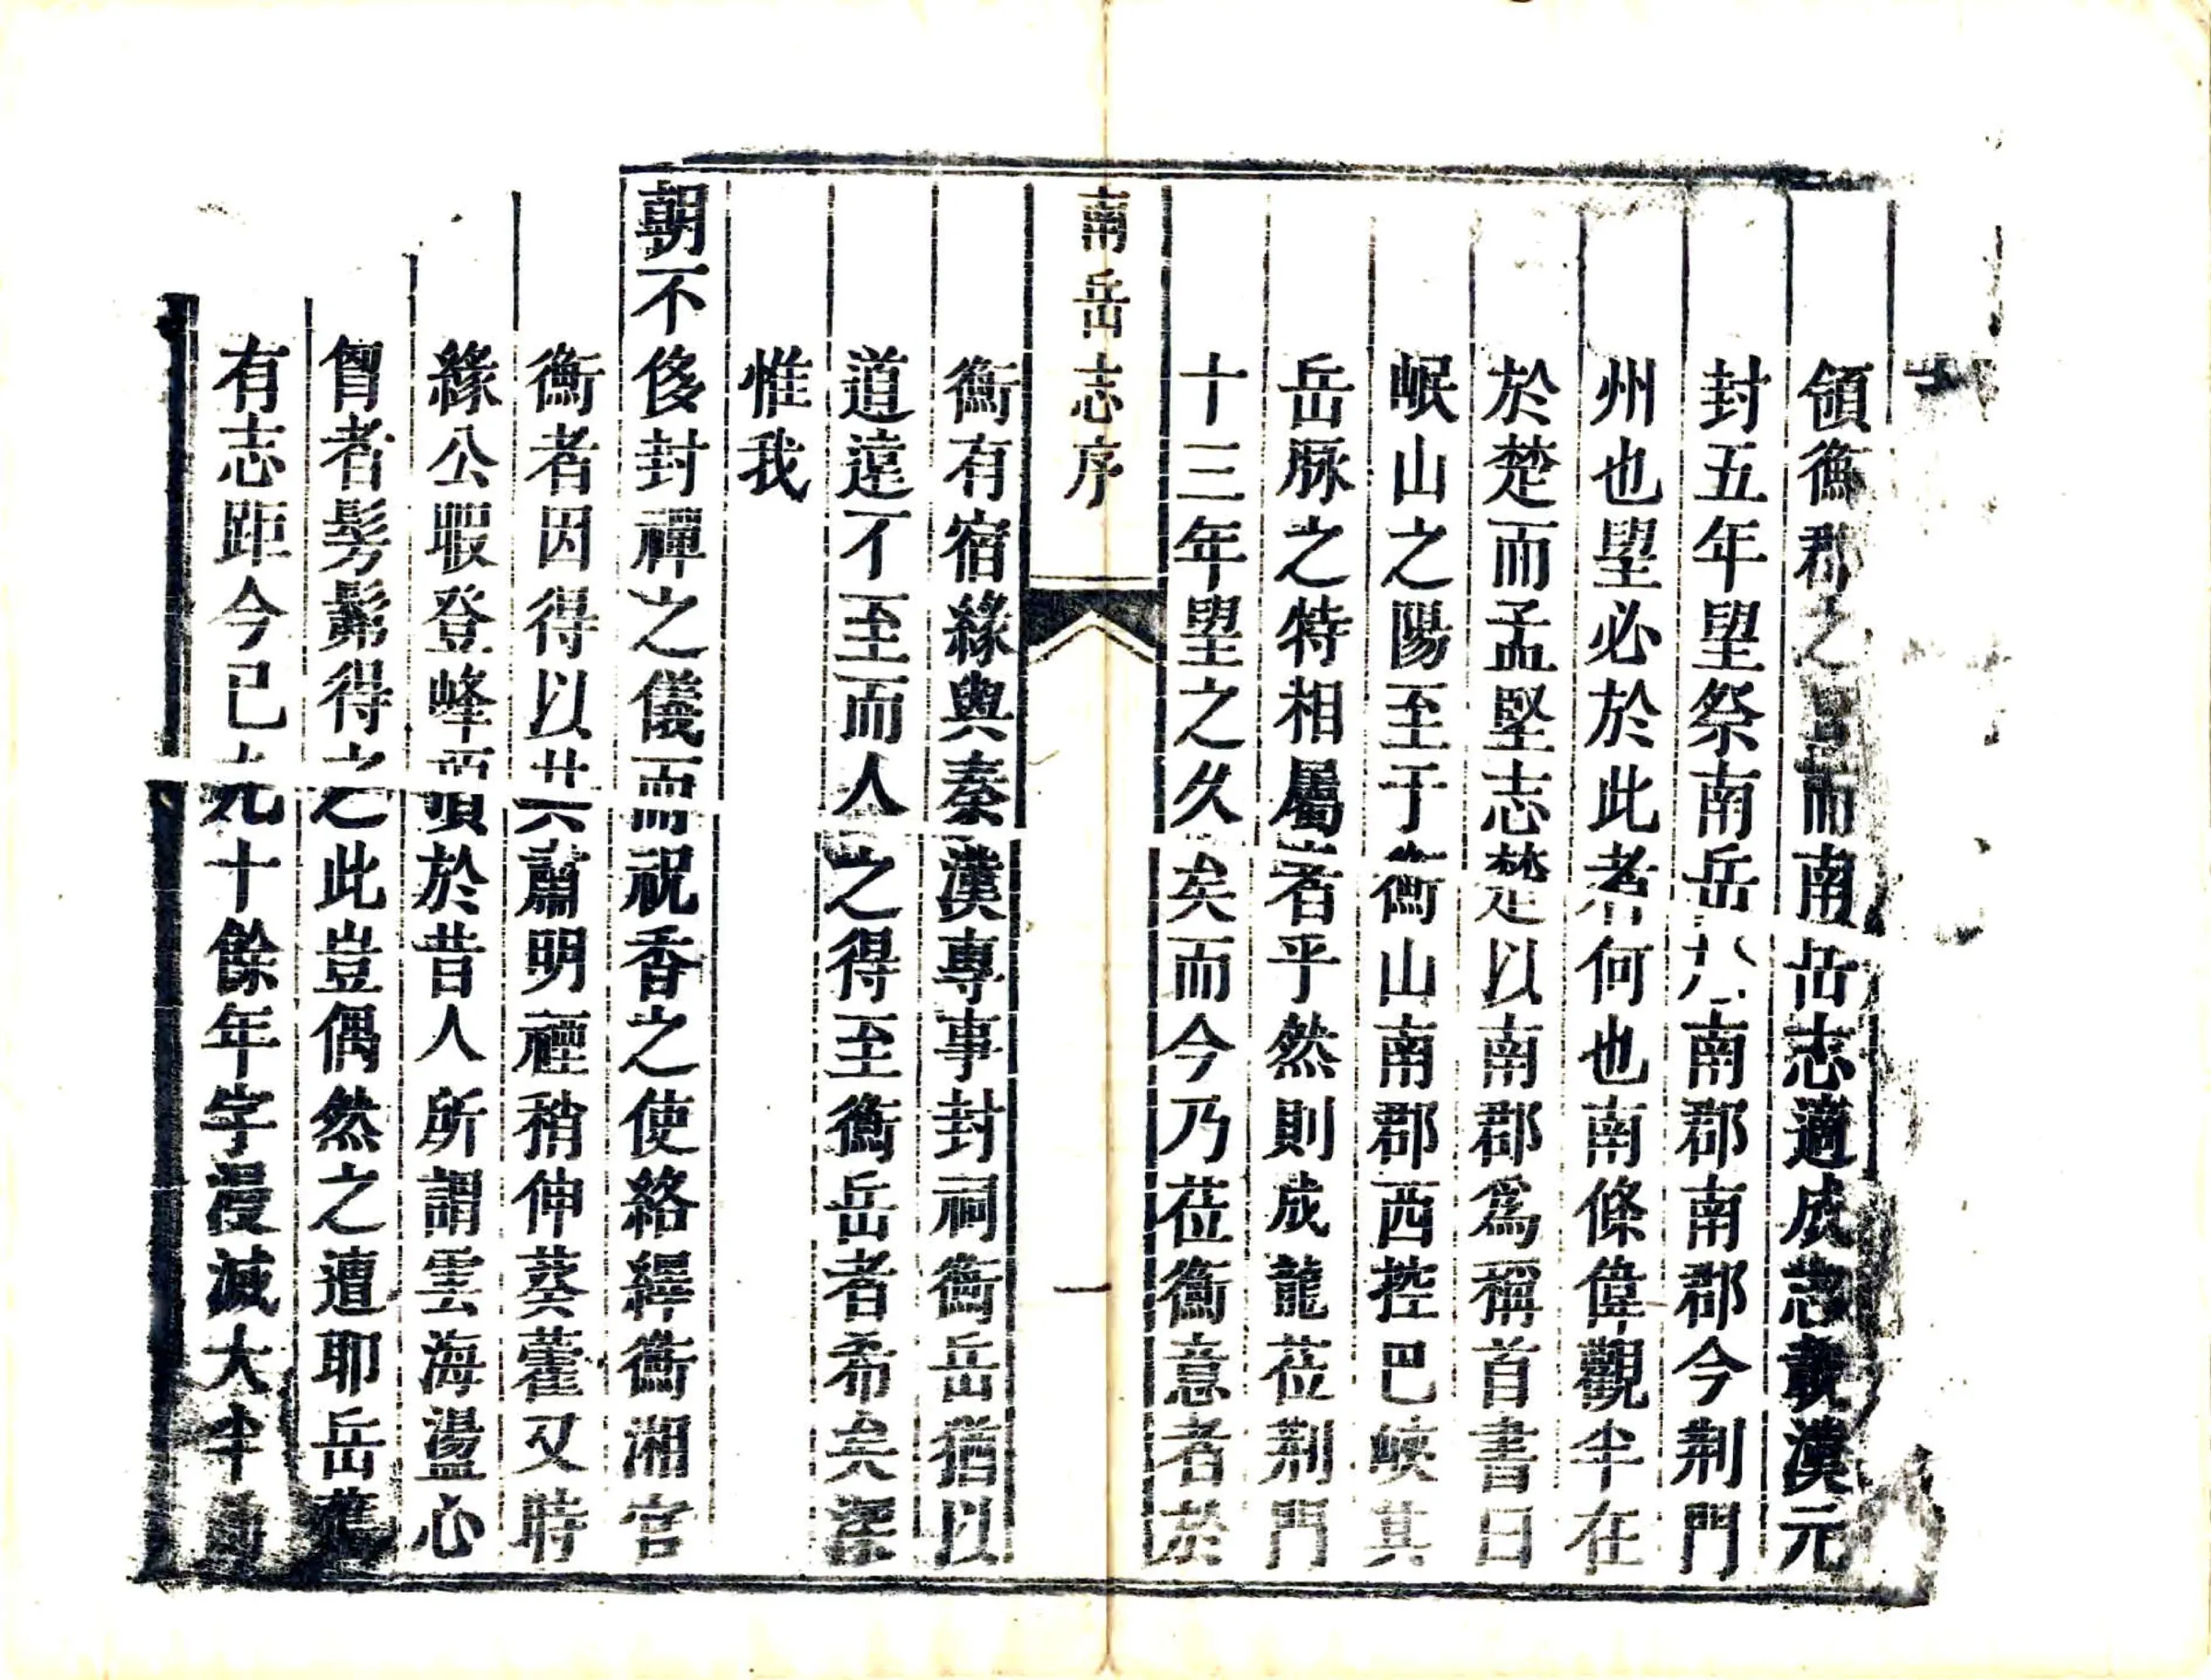 領衡郡之而南岳志適成志載漢元
封五年朢祭南岳於南郡南郡今荆門
州也朢必於此者何也南條偉觀半在
於楚而孟堅志楚以南郡爲稱首書曰
岷山之陽至于衡山南郡西控巴峽其
岳脉之特相屬者乎然則成龍莅荆門
十三年朢之久矣而今乃莅衡意者於
南岳志序
一
衡有宿緣與秦漢專事封祠衡岳猶以
道遠不至而人之得至衡岳者希矣深
惟我
朝不侈封禪之儀而祝香之使絡繹衡湘官
衡者因得以共肅明禋稍伸葵藿又時
緣公暇登峰頂於昔人所謂雲海盪心
胷者髣髴得之此豈偶然之遭耶岳舊
有志距今已九十餘年字漫滅大半